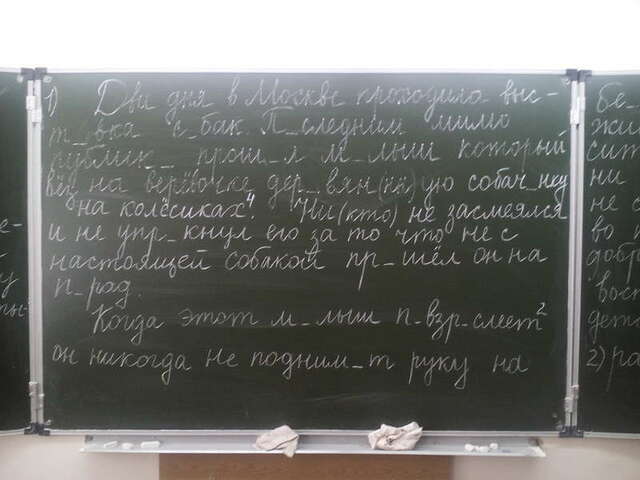 1) Два дня в Москве проходила выс-
т_вка с_бак. П_следним мимо
публик_ прош_л м_лыш который
вёз на верёвочке дер_вян(нн)ую собач_нку
на колёсиках⁴. Ни(кто) не засмеялся
и не упр_кнул его за то что не с
настоящей собакой пр_шёл он на
п_рад.
Когда этот м_лыш п_взр_слеет²
он никогда не подним_т руку на
бе
жи
сит
ни
не с
во
добр
вост
дет
2) ра